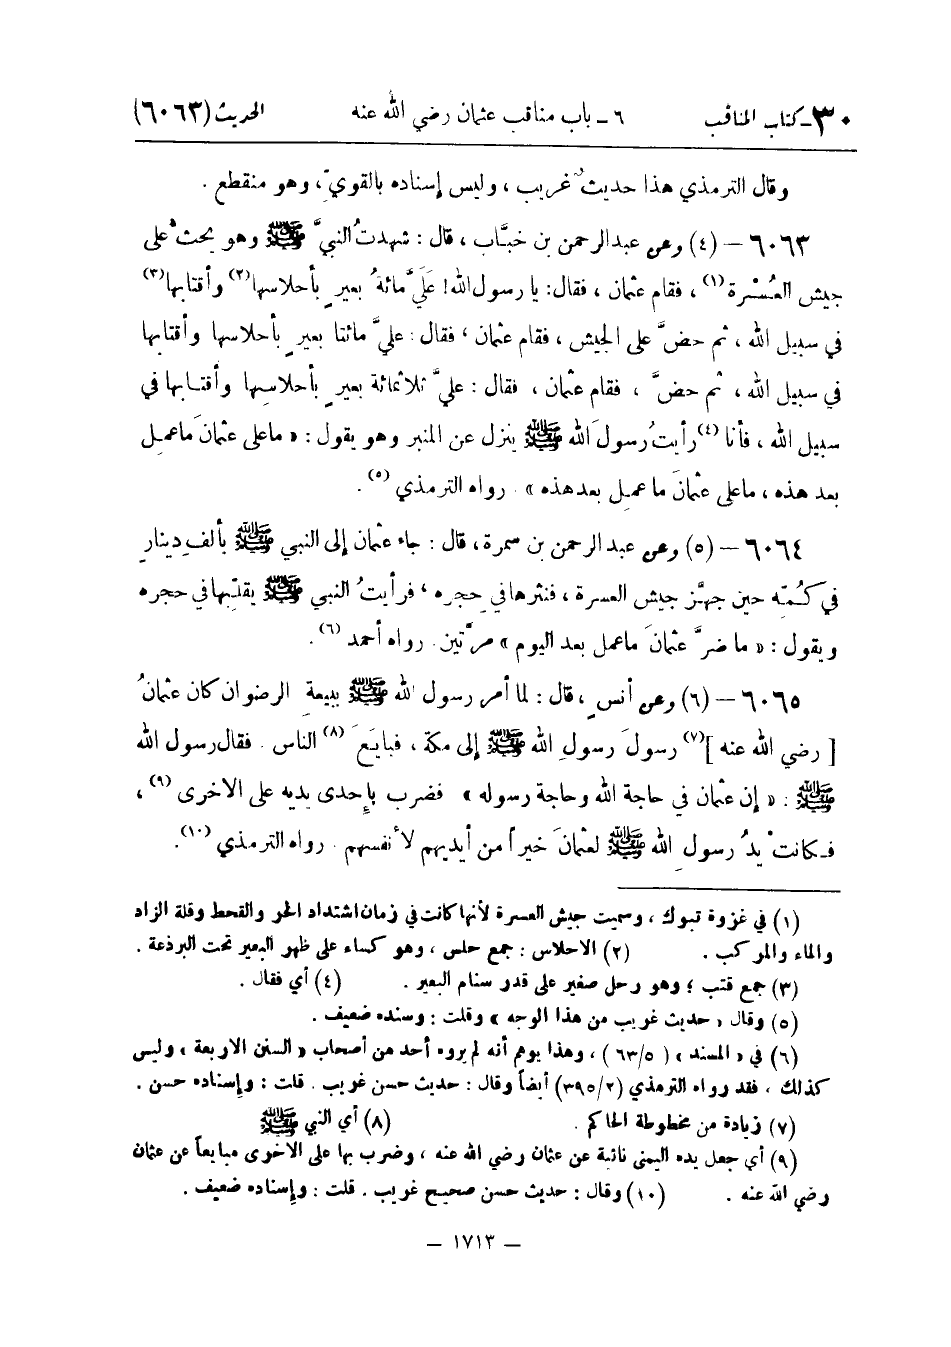 ٣٠ـ كتاب المناقب ٦ ـ باب مناقب عثمان رضي الله عنه الحديث (٦٠٦٣)
وقال الترمذي هذا حديثٌ غريب ، وليس إسناده بالقويّ ، وهو منقطع .
٦٠٦٣ – (٤) وعن عبدالرحمن بن خبَّاب ، قال : شهدتُ النبيَّ ﷺ وهو يحثُّ على
جيش العُسْرة(١) ، فقام عثمان ، فقال : يا رسول الله! عَلَيَّ مائةُ بعيرٍ بأحلاسها(٢) وأقتابها(٣)
في سبيل الله ، ثم حضَّ على الجيش ، فقام عثمان ، فقال : عليَّ مائتا بعيرٍ بأحلاسها وأقتابها
في سبيل الله ، ثم حضَّ ، فقام عثمان ، فقال : عليَّ ثلاثمائة بعيرٍ بأحلاسِها وأقتابها في
سبيل الله ، فأنا(٤) رأيتُ رسولَ الله ﷺ ينزل عن المنبر وهو يقول : « ما على عثمانَ ما عمِل
بعد هذه ، ما على عثمانَ ما عمِل بعد هذه » . رواه الترمذي(٥) .
٦٠٦٤ – (٥) وعن عبد الرحمن بن سمرة ، قال : جاء عثمان إلى النبي ﷺ بألفِ دينارٍ
في كُمّه حين جهّز جيش العسرة ، فنثرها في حِجره ، فرأيتُ النبي ﷺ يقلّبها في حجره
ويقول : « ما ضرَّ عثمانَ ما عمل بعد اليوم » مرَّتين . رواه أحمد(٦) .
٦٠٦٥ – (٦) وعن أنسٍ ، قال : لما أمر رسول الله ﷺ ببيعةِ الرضوان كان عثمانُ
[ رضي الله عنه ](٧) رسولَ رسولِ الله ﷺ إلى مكة ، فبايَعَ(٨) الناس . فقال رسول الله
ﷺ : « إن عثمان في حاجة الله وحاجة رسوله » فضرب بإحدى يديه على الاخرى(٩) ،
فكانتْ يدُ رسولِ الله ﷺ لعثمانَ خيراً من أيديهم لأنفسهم . رواه الترمذي(١٠) .
(١) في غزوة تبوك ، وسميت جيش العسرة لأنها كانت في زمان اشتداد الحر والقحط وقلة الزاد
والماء والمركب . (٢) الاحلاس : جمع حلس ، وهو كساء على ظهر البعير تحت البرذعة .
(٣) جمع قتب ؛ وهو رحل صغير على قدر سنام البعير . (٤) أي فقال .
(٥) وقال « حديث غريب من هذا الوجه » وقلت : وسنده ضعيف .
(٦) في « المسند » (٦٣/٥) ، وهذا يوهم أنه لم يروه أحد من أصحاب « السنن الاربعة » وليس
كذلك ، فقد رواه الترمذي (٣٩٥/٢) أيضاً وقال : حديث حسن غريب . قلت : وإسناده حسن .
(٧) زيادة من مخطوطة الحاكم . (٨) أي النبي ﷺ
(٩) أي جعل يده اليمنى نائبة عن عثمان رضي الله عنه ، وضرب بها على الاخرى مبايعاً عن عثمان
رضي الله عنه . (١٠) وقال : حديث حسن صحيح غريب . قلت : وإسناده ضعيف .
– ١٧١٣ –